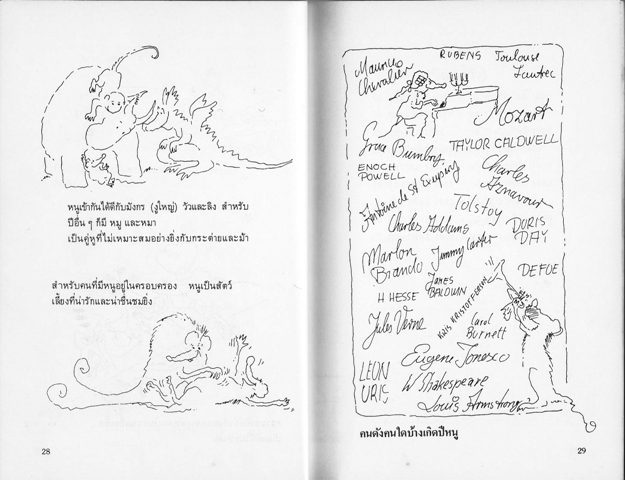 หนูเข้ากันได้ดีกับมังกร (งูใหญ่) วัวและลิง สำหรับ
ปีอื่น ๆ ก็มี หมู และหมา
เป็นคู่หูที่ไม่เหมาะสมอย่างยิ่งกับกระต่ายและม้า
สำหรับคนที่มีหนูอยู่ในครอบครอง หนูเป็นสัตว์
เลี้ยงที่น่ารักและน่าชื่นชมยิ่ง
28
Maurice
Chevalier
RUBENS
Toulouse
Lautrec
Mozart
Grace Bumbry
TAYLOR CALDWELL
ENOCH
POWELL
Charles
Aznavour
Antoine de St Exupery
Tolstoy
Charles
DORIS
DAY
Marlon
Brando
Jimmy Carter
DEFOE
JAMES
BALDWIN
H HESSE
KRIS KRISTOFFERSON
Jules Verne
Carol
Burnett
Eugene Ionesco
LEON
URIS
W Shakespeare
Louis Armstrong
คนดังคนใดบ้างเกิดปีหนู
29